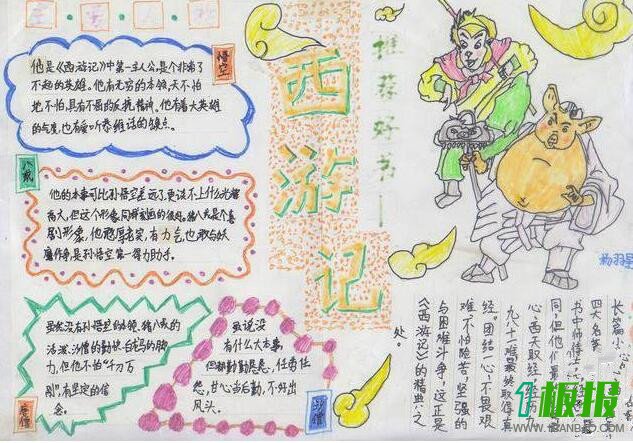 西游记
推荐好书
悟空
他是《西游记》中第一主人公,是个非常了
不起的英雄。他有无穷的本领,天不怕
地不怕,具有不屈的反抗精神。他有着大英雄
的气度,也有爱听恭维话的缺点。
八戒
他的本事可比孙悟空差远了,更谈不上什么光辉
高大,但这个形象同样刻画的很好。猪八戒是个喜
剧形象,他憨厚老实,有力气,也敢与妖
魔作争,是孙悟空第一得力助手。
唐僧
虽然没有孙悟空的本领、猪八戒的
活泼、沙僧的勤快、白龙马的脚
力,但他不怕“千刀万
剐”,有坚定的信
念。
沙僧
虽说没
有什么大本事,
但都勤勤恳恳,任劳任
怨,甘心当后勤,不好出
风头。
长篇小
四大名
书中师徒
同,但他们
心,西天取经
九八十一难最终取得真
经。团结一心、不畏艰
难、不怕险苦,坚强的
与困难斗争,这正是
《西游记》的精典之
处。
1板报
WWW.1BANBAO.COM